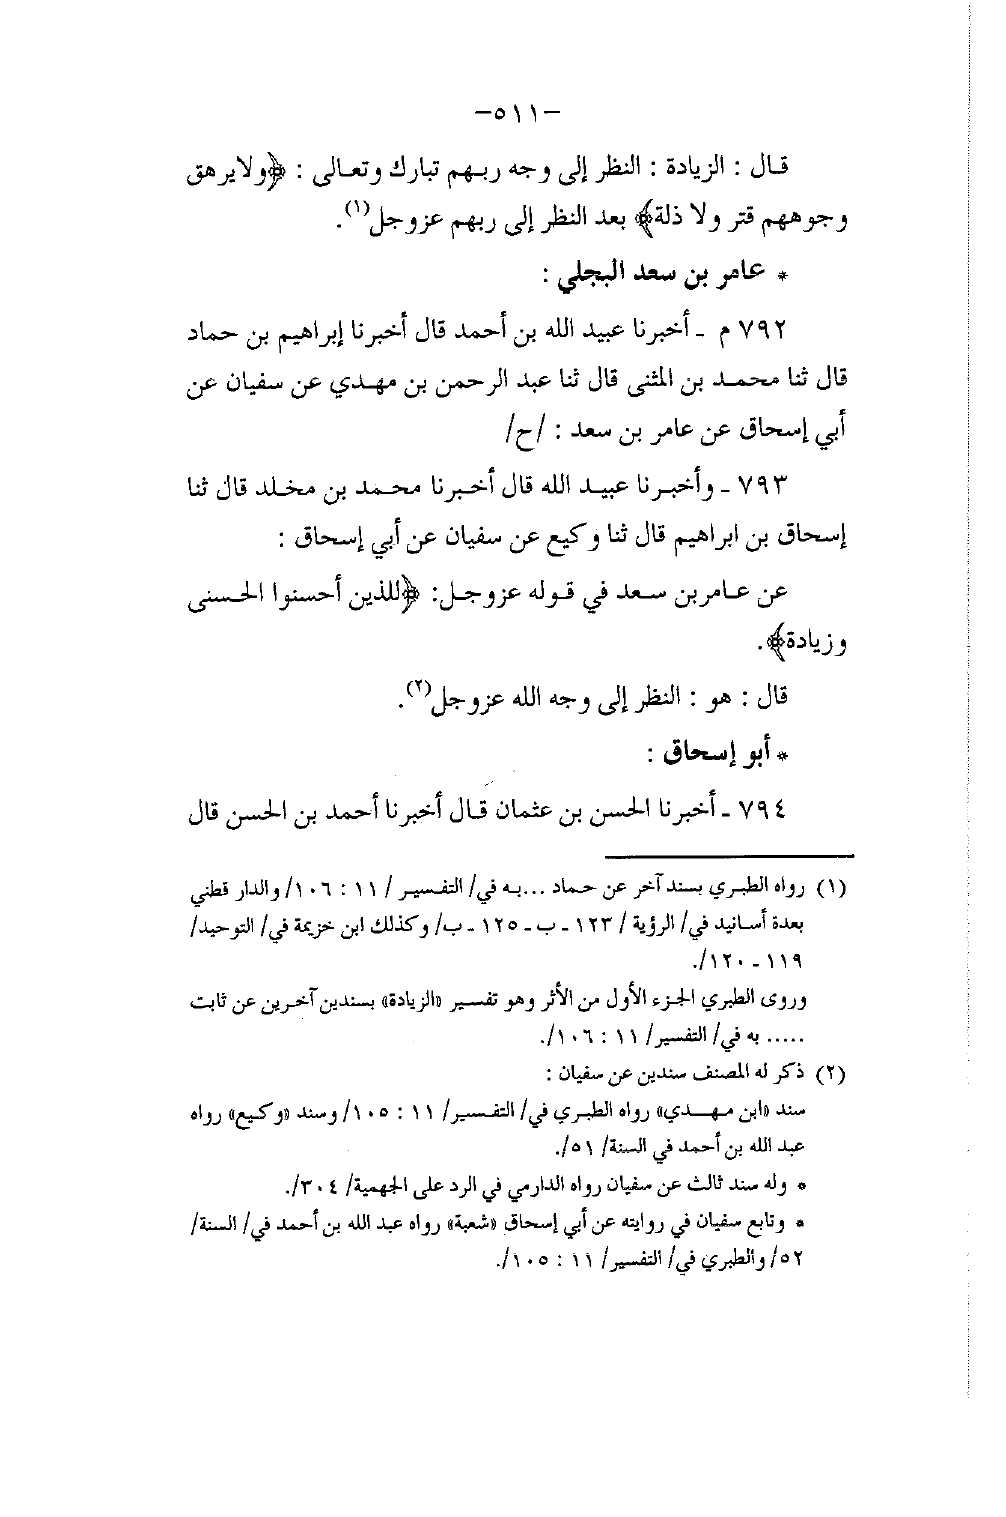 –٥١١–
قال : الزيادة : النظر إلى وجه ربهم تبارك وتعالى : ﴿ولايرهق
وجوههم قتر ولا ذلة﴾ بعد النظر إلى ربهم عزوجل(١).
* عامر بن سعد البجلي :
٧٩٢ م ـ أخبرنا عبيد الله بن أحمد قال أخبرنا إبراهيم بن حماد
قال ثنا محمد بن المثنى قال ثنا عبد الرحمن بن مهدي عن سفيان عن
أبي إسحاق عن عامر بن سعد : /ح/
٧٩٣ ـ وأخبرنا عبيد الله قال أخبرنا محمد بن مخلد قال ثنا
إسحاق بن ابراهيم قال ثنا وكيع عن سفيان عن أبي إسحاق :
عن عامربن سعد في قوله عزوجل: ﴿للذين أحسنوا الحسنى
وزيادة﴾.
قال : هو : النظر إلى وجه الله عزوجل(٢).
* أبو إسحاق :
٧٩٤ ـ أخبرنا الحسن بن عثمان قال أخبرنا أحمد بن الحسن قال
(١) رواه الطبري بسند آخر عن حماد ...به في/ التفسير / ١١ : ١٠٦/ والدار قطني
بعدة أسانيد في/ الرؤية / ١٢٣ ـ ب ـ ١٢٥ ـ ب/ وكذلك ابن خزيمة في/ التوحيد/
١١٩ ـ ١٢٠/.
وروى الطبري الجزء الأول من الأثر وهو تفسير «الزيادة» بسندين آخرين عن ثابت
..... به في/ التفسير/ ١١ : ١٠٦/.
(٢) ذكر له المصنف سندين عن سفيان :
سند «ابن مهدي» رواه الطبري في/ التفسير/ ١١ : ١٠٥/ وسند «وكيع» رواه
عبد الله بن أحمد في السنة/ ٥١/.
* وله سند ثالث عن سفيان رواه الدارمي في الرد على الجهمية/ ٣٠٤/.
* وتابع سفيان في روايته عن أبي إسحاق «شعبة» رواه عبد الله بن أحمد في/ السنة/
٥٢/ والطبري في/ التفسير/ ١١ : ١٠٥/.